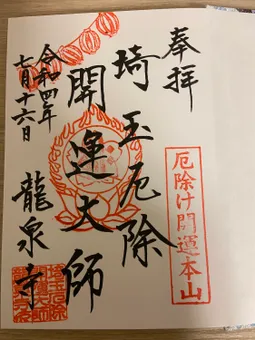 奉拝
厄除け開運本山
埼玉厄除
開運大師
龍泉寺
令和四年
七月十六日